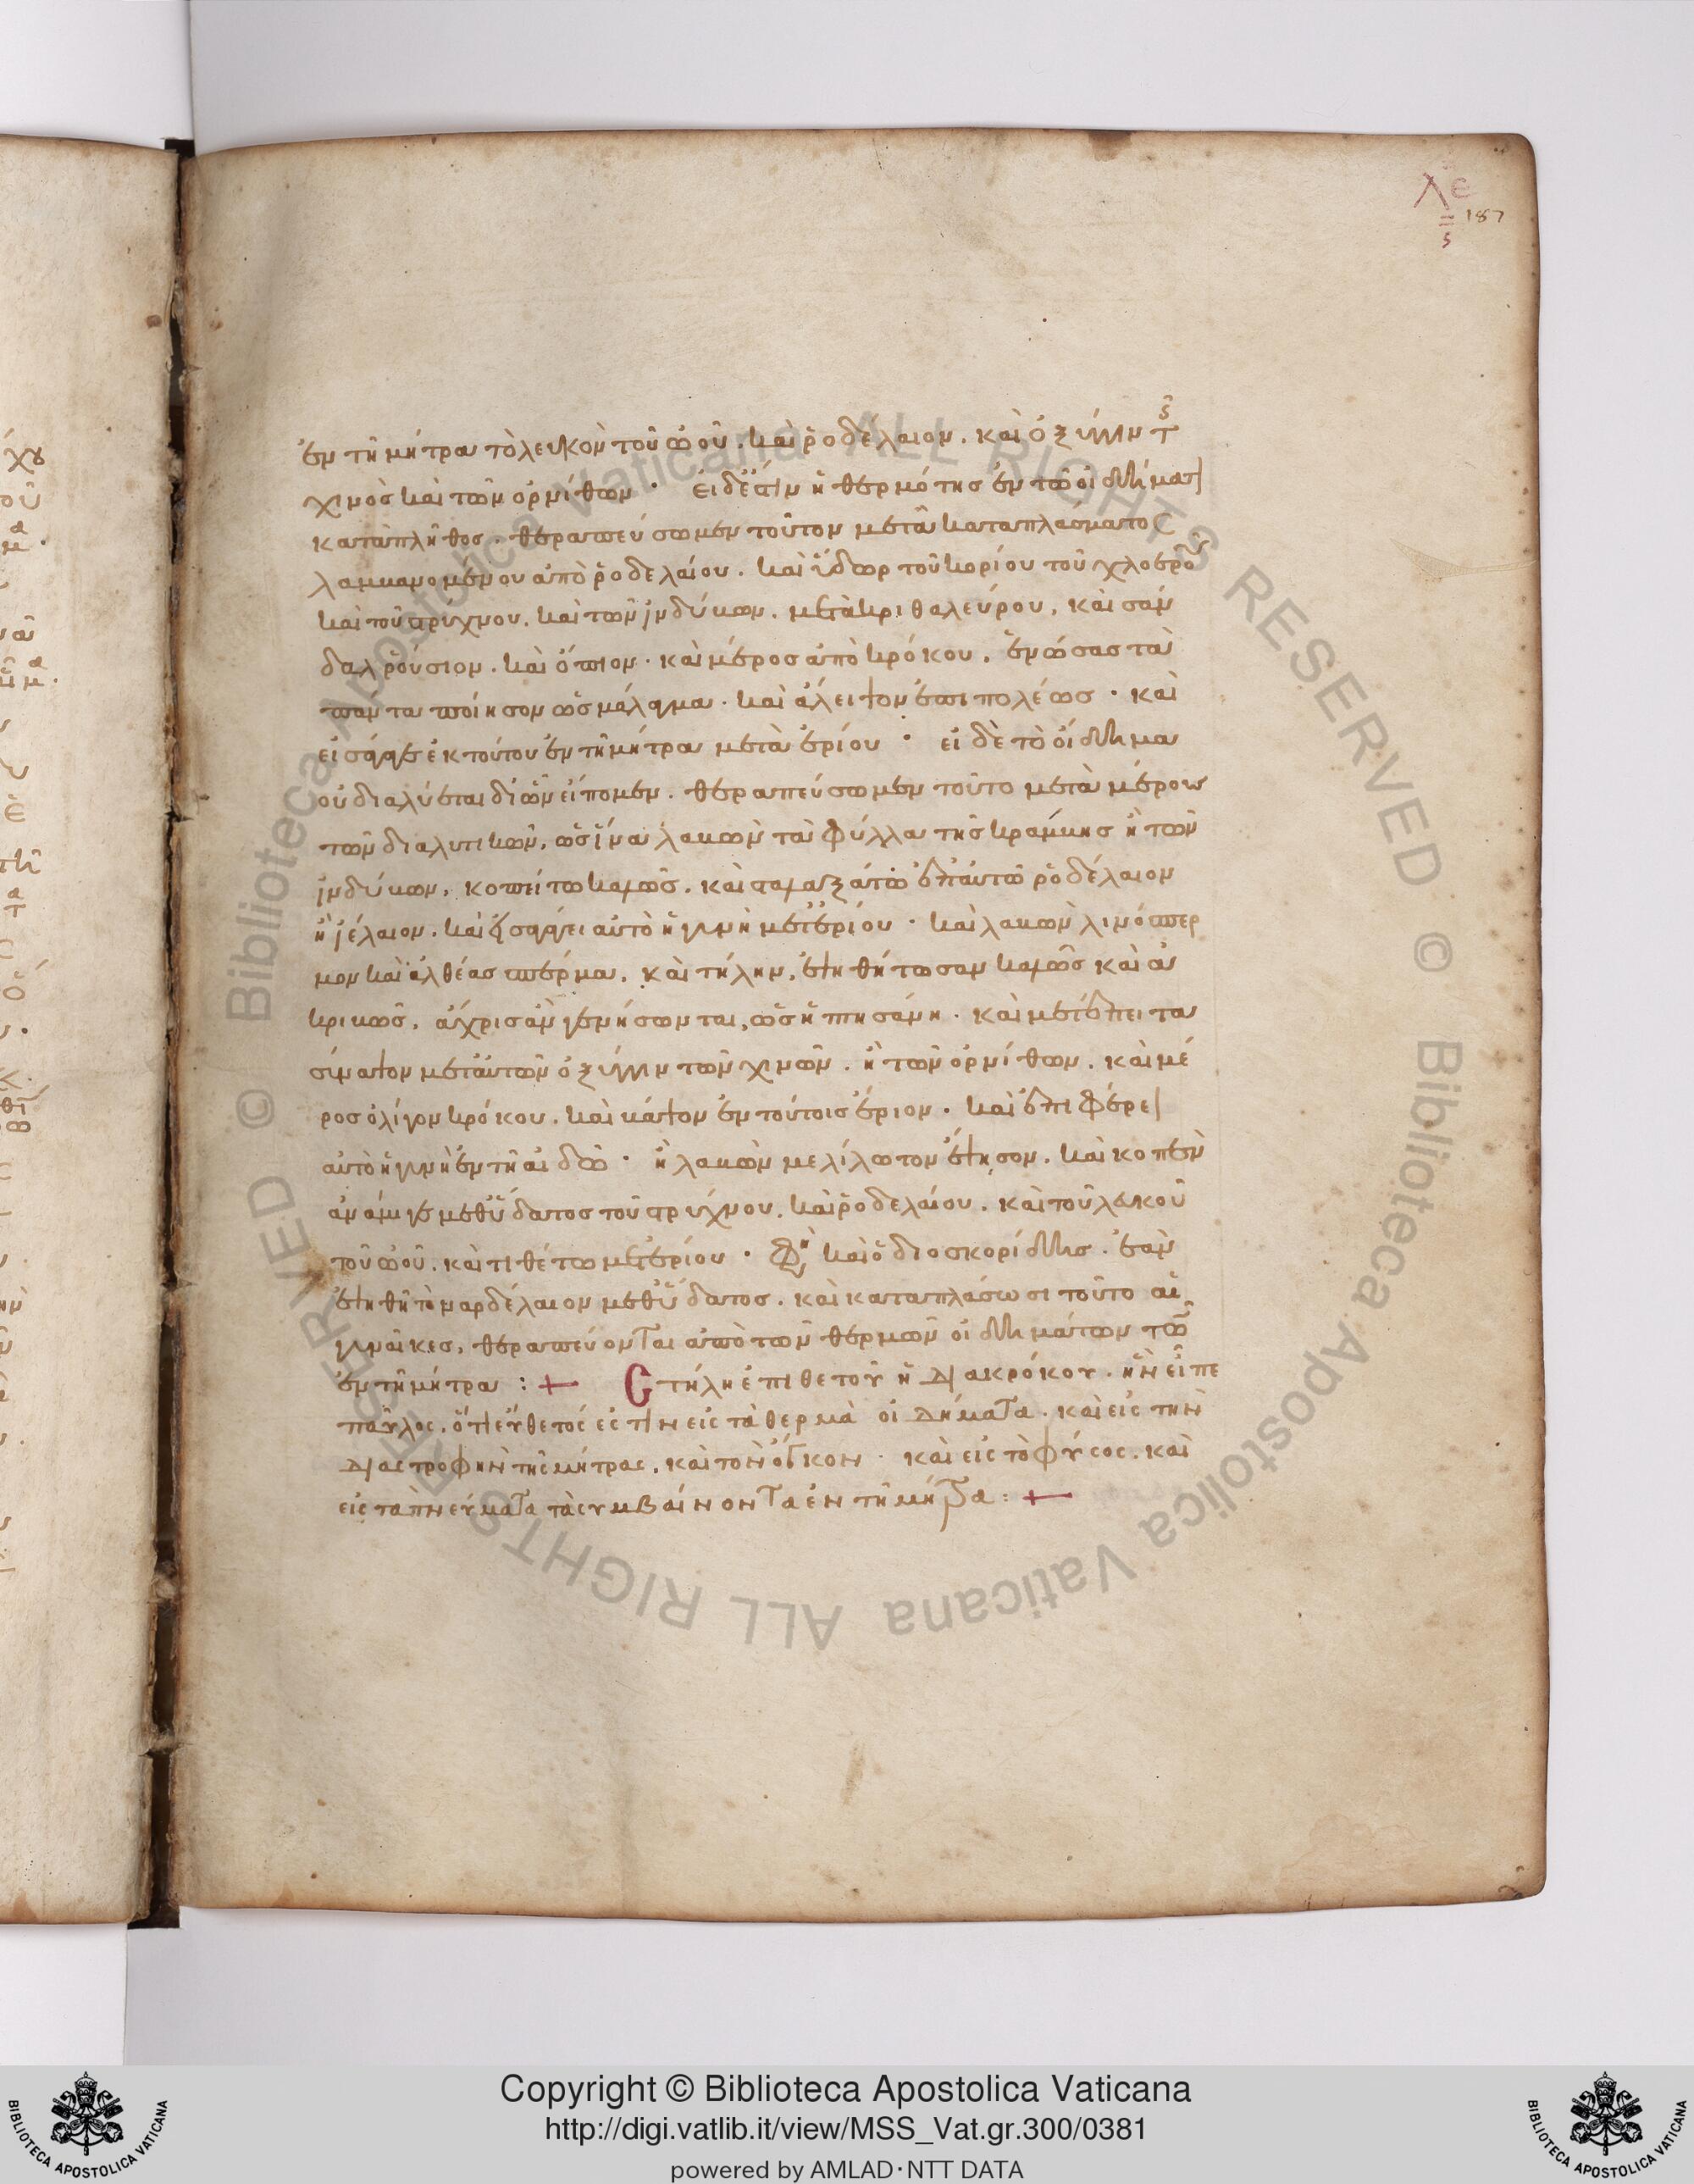 λε
ς
187
ἐν τῆ μήτρα τὸ λευκὸν τοῦ ὠοῦ. καὶ ῥοδέλαιον. καὶ ὀξύγγην τ
χινὸς καὶ τῶν ὀρνίθων · εἰ δέ ἐστιν ἡ θερμότης ἐν τῶ οἰδήματι
καταπλῆθος. θεραπεύσωμεν τοῦτον μετὰ καταπλάσματος
λαμβανομένου ἀπὸ ῥοδελαίου. καὶ ὕδωρ τοῦ κορίου τοῦ χλοεροῦ
καὶ τοῦ στρύχνου. καὶ τῶν ἰνδύβων. μετὰ κριθαλεύρου. καὶ σαν
δαλ ῥούσιον. καὶ ὄπιον. καὶ μέρος ἀπὸ κρόκου. ἑνώσας τὰ
πάντα ποίησον ὡς μάλαγμα. καὶ ἄλειψον ἐπιπολέως · καὶ
εἰσάγαγε ἐκ τούτου ἐν τῆ μήτρα μετὰ ἐρίου · εἰ δὲ τὸ οἴδημα
οὐ διαλύεται δι' ὧν εἴπομεν. θεραπεύσωμεν τοῦτο μετὰ μέρους
τῶν διαλυτικῶν, ὡς ἵνα λαβὼν τὰ φύλλα τῆς κράμβης ἢ τῶν
ἰνδύβων, κοπείτω καλῶς. καὶ σταλαξάτω ἐπ' αὐτῶ ῥοδέλαιον
ἢ ἔλαιον. καὶ εἰσαγάγει αὐτὸ ἡ γυνὴ μετ' ἐρίου · καὶ λαβὼν λινόσπερ
μον καὶ ἀλθέας σπέρμα. καὶ τήλην, ἑψηθήτωσαν καλῶς καὶ ἀ
κριβῶς, ἄχρις ἂν γενήσωνται, ὡς ἡ πτησάνη. καὶ μετέπειτα
σίμαψον μετ' αὐτῶν ὀξύγγην τῶν χινῶν. ἢ τῶν ὀρνίθων. καὶ μέ
ρος ὀλίγον κρόκου. καὶ βάψον ἐν τούτοις ἔριον. καὶ ἐπιφέρει
αὐτὸ ἡ γυνὴ ἐν τῆ αἰδῶ · ἢ λαβὼν μελίλωτον ἕψησον. καὶ κοπὲν
ἀνάμιγε μεθ' ὕδατος τοῦ στρύχνου. καὶ ῥοδελαίου. καὶ τοῦ λευκοῦ
τοῦ ὠοῦ. καὶ τιθέτω μετ' ἐρίου · φη καὶ ὁ διοσκορίδης. ἐὰν
ἑψηθῆ τὸ ναρδέλαιον μεθ' ὕδατος. καὶ καταπλάσωσι τοῦτο αἱ
γυναῖκες, θεραπεύονται ἀπὸ τῶν θερμῶν οἰδημάτων τῶν
ἐν τῆ μήτρα : + Στήλη ἐπιθέτου ἡ διακρόκου. ἣν εἶπε
παῦλος. ὅτι εὔθετός ἐστιν εἰς τὰ θερμὰ οἰδήματα. καὶ εἰς τὴν
διαστροφὴν τῆς μήτρας. καὶ τὸν ὄγκον · καὶ εἰς τὸ φύσος. καὶ
εἰς τὰ πνεύματα τὰ συμβαίνοντα ἐν τῆ μήτρα : +
Copyright © Biblioteca Apostolica Vaticana
http://digi.vatlib.it/view/MSS_Vat.gr.300/0381
powered by AMLAD·NTT DATA
BIBLIOTECA APOSTOLICA VATICANA
BIBLIOTECA APOSTOLICA VATICANA
© Biblioteca Apostolica Vaticana ALL RIGHTS RESERVED © Biblioteca Apostolica Vaticana ALL RIGHTS RESERVED